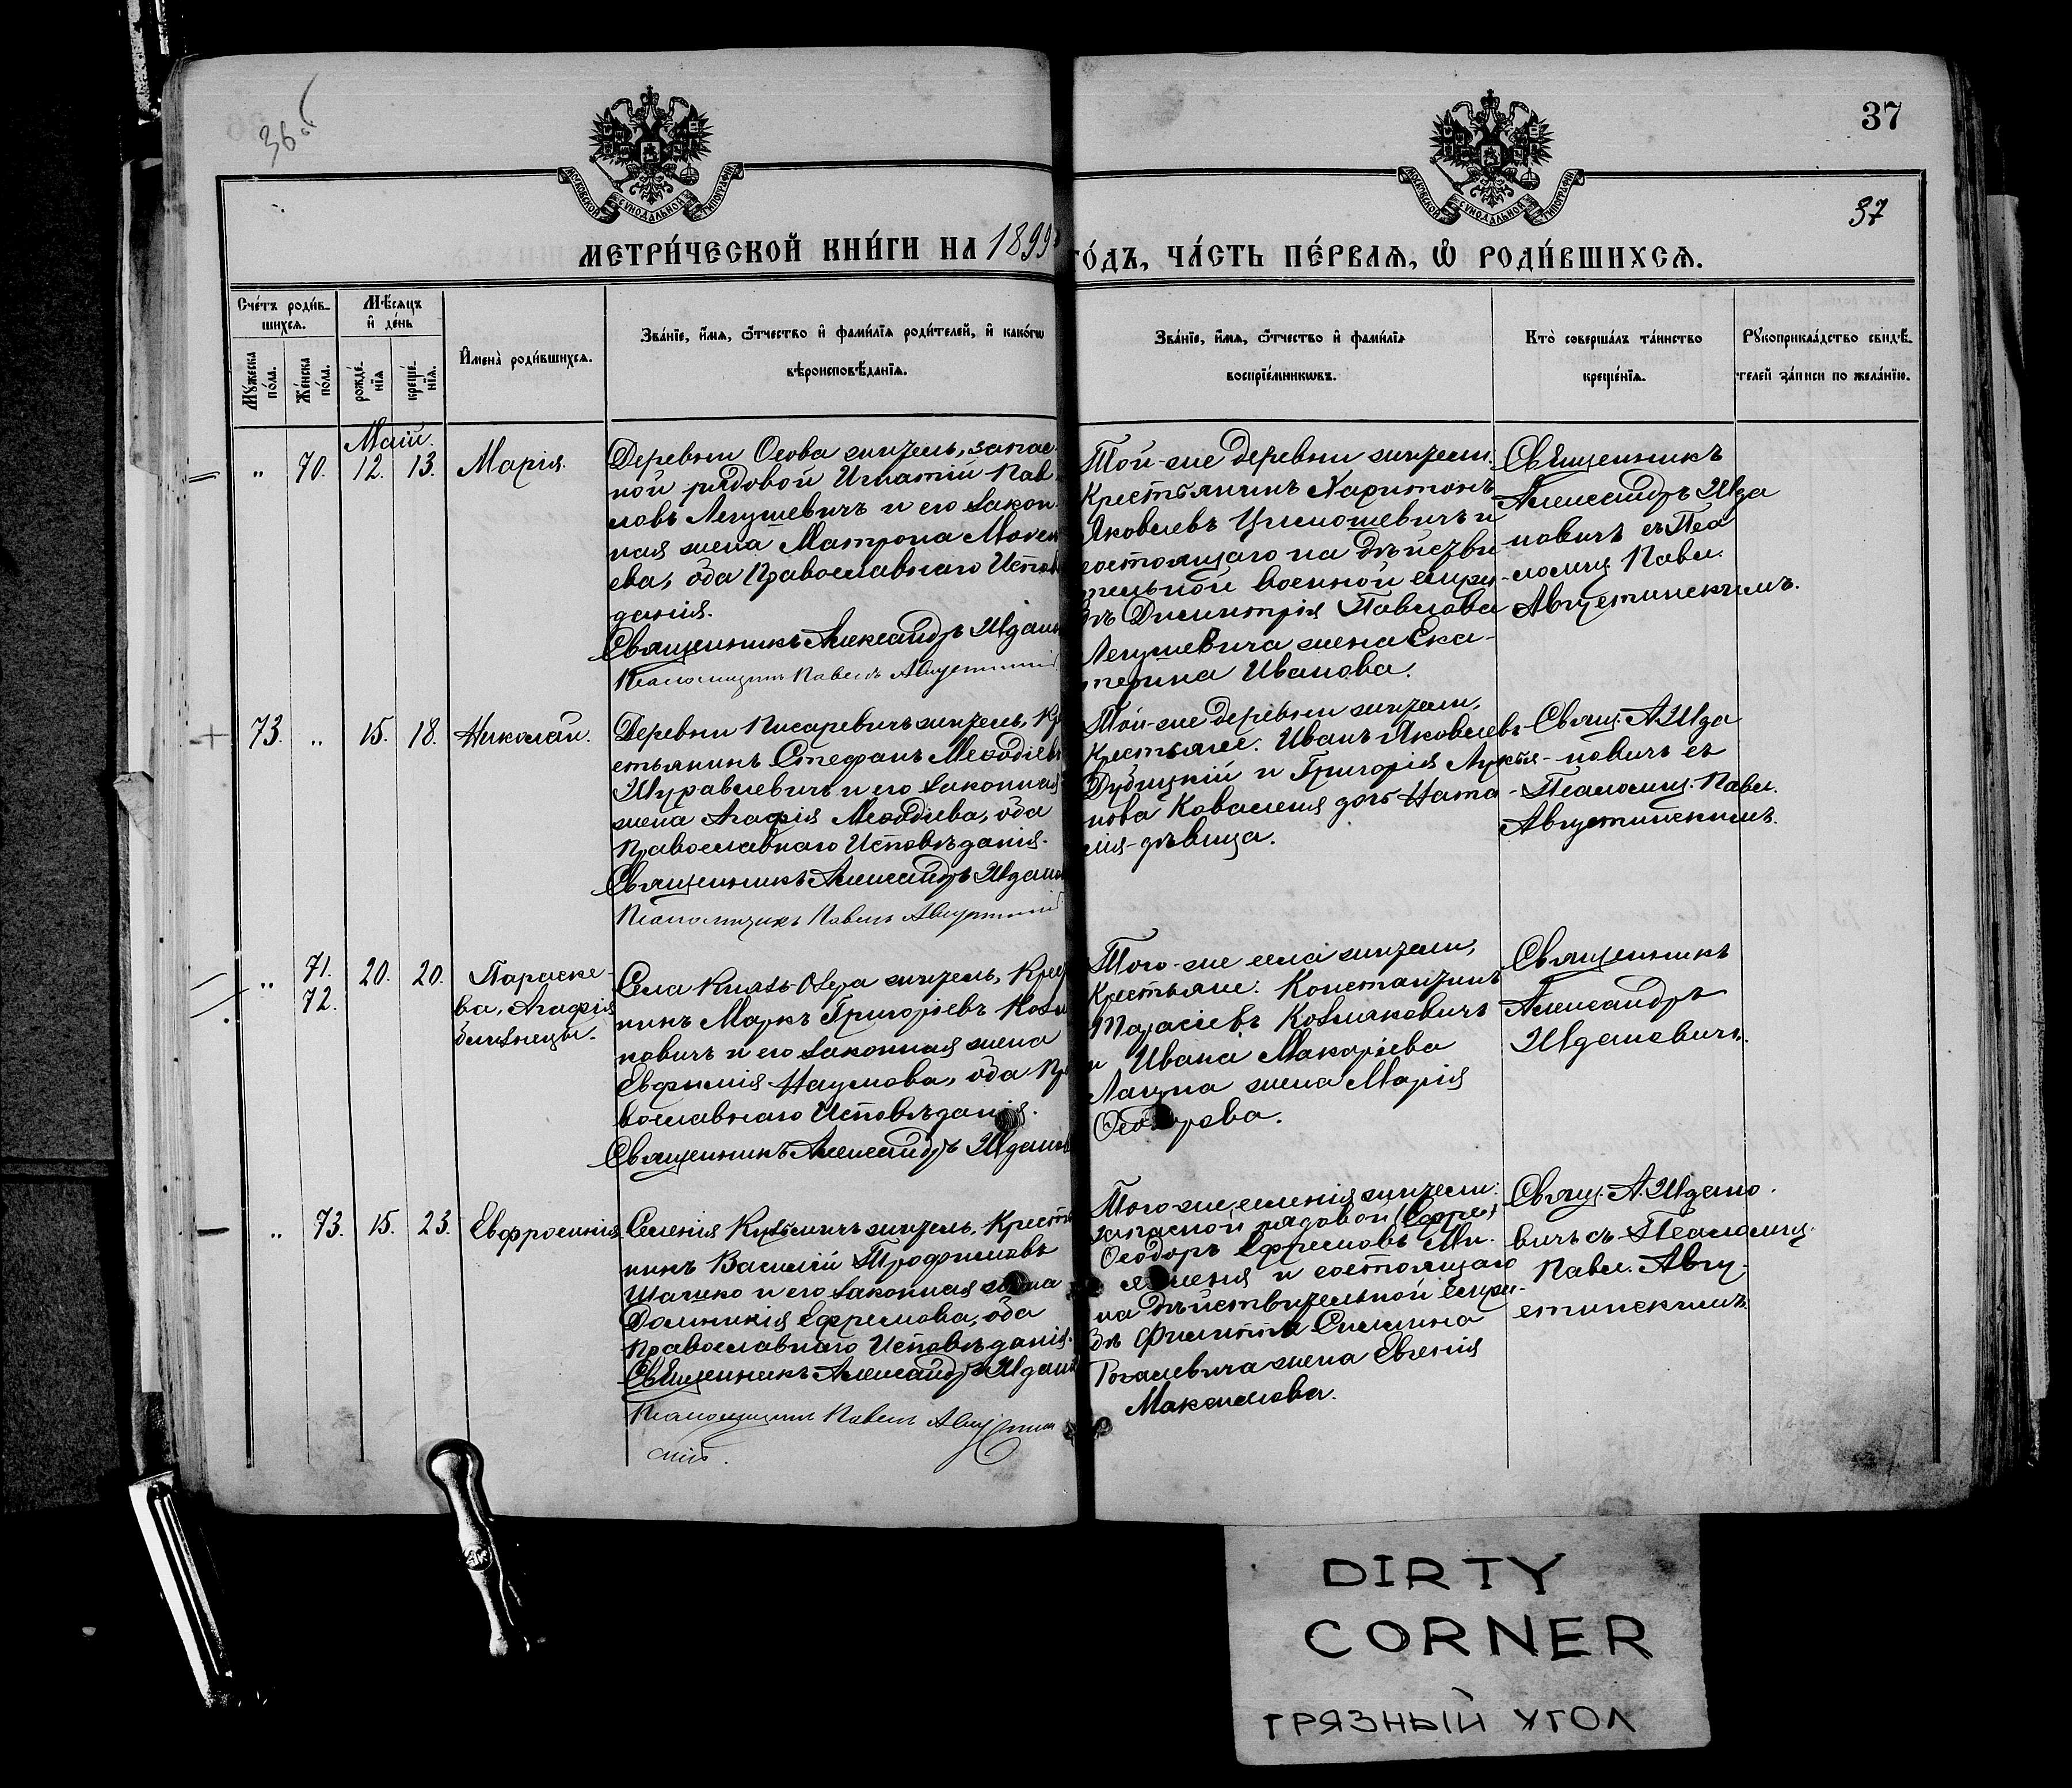 36 об
37
МОСКОВСКОЙ СѴНОДАЛЬНОЙ ТИПОГРАФІИ
МОСКОВСКОЙ СѴНОДАЛЬНОЙ ТИПОГРАФІИ
37
МЕТРИ́ЧЕСКОЙ КНИ́ГИ НА 1899
ГО́ДЪ, ЧА́СТЬ ПЕ́РВАѦ, Ѡ҆ РОДИ́ВШИХСѦ.
Сче́тъ роди́в-
шихсѧ.
Мѣ́сѧцъ
и҆ де́нь
Мꙋ́жеска
по́ла.
Же́нска
по́ла.
рожде́-
нїѧ
креще́-
нїѧ.
И҆мена̀ роди́вшихсѧ.
Зва́нїе, и҆́мѧ, ѻ҆́тчество и҆ фами́лїѧ роди́телей, и҆ како́гѡ
вѣроисповѣ́данїѧ.
Зва́нїе, и҆́мѧ, ѻ҆́тчество и҆ фами́лїѧ
воспрїе́мникѡвъ.
Кто̀ соверша́лъ та́инство
креще́нїѧ.
Рꙋкоприкла́дство свидѣ́-
телей за́писи по жела́нїю.
Май.
„ 70. 12. 13. Марія.
Деревни Осова житель, запас-
ной рядовой Игнатій Пав
ловъ Легушевичъ и его закон-
ная жена Матрона Моѵсе
ева, оба Православнаго Испов
данія.
Священникъ Александръ Ждано
Псаломщикъ Павелъ Августинскі
Той-же деревни жители.
Крестьянинъ Харитонъ
Яковлевъ Цимошевичъ и
состоящаго на дѣйстви
тельной военной служ-
бѣ Димитрія Павлова
Легушевича жена Ека-
терина Иванова.
Священникъ
Александръ Жда
новичъ съ Пса
ломщ. Павл.
Августинскимъ.
73. „ 15. 18. Николай.
Деревни Писаревичъ житель, Кр
естьянинъ Стефанъ Меѳодіевъ
Журавлевичъ и его законная
жена Агафія Меѳодіева, оба
Православнаго Исповѣданія.
Священникъ Александръ Ждано
Псаломщикъ Павелъ Августинскі
Той-же деревни жители,
Крестьяне: Иванъ Яковлевъ
Дубицкій и Григорія Лукья-
нова Коваленя дочь Ната-
лія-дѣвица.
Свящ. А. Жда
новичъ съ
Псаломщ. Павл.
Августинскимъ.
„ 71. 20. 20. Параске-
72. ва, Агафія
близнецы.
Села Князь-Озера житель, Крест
нинъ Маркъ Григоріевъ Козл
ковичъ и его законная жена
Евфимія Наумова, оба Пр
вославнаго Исповѣданія.
Священникъ Александръ Ждано
Того-же села жители,
Крестьяне: Константинъ
и Ивана Макаріева
жена Марія
Священникъ
Александръ
Ждановичъ.
„ 73. 15. 23. Евфросинія
Селенія житель, Крест
нинъ Василій Трофимовъ
Шашко и его законная жена
Домникія Ефремова, оба
Православнаго Исповѣданія.
Священникъ Александръ Ждано
Псаломщикъ Павелъ Августин
скій.
Того-же селенія жители:
запасной рядовой (Ефре)
Ѳеодоръ Ефремовъ
и состоящаго
на дѣйствительной служ-
бѣ Филиппа Симина
Рогалевича жена Евгенія
Максимова.
Свящ. А. Ждано-
вичъ съ Псаломщ.
Павл. Авгу-
стинскимъ
DIRTY
CORNER
ГРЯЗНЫЙ УГОЛ